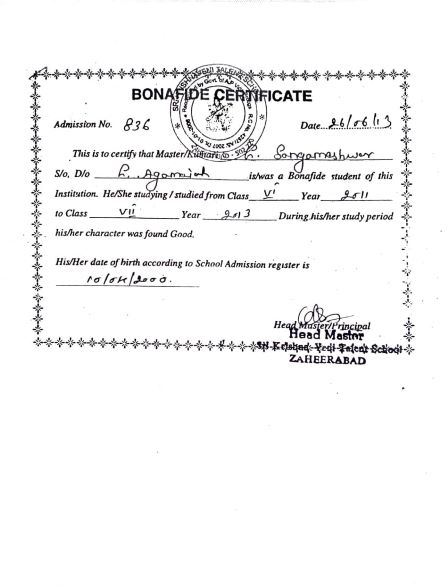 BONAFIDE CERTIFICATE
Admission No. 836 Date 26/06/13
This is to certify that Master/Kumari L. Sangameshwer
S/o, D/o L. Agamaiah is/was a Bonafide student of this
Institution. He/She studying / studied from Class VI Year 2011
to Class VII Year 2013 During his/her study period
his/her character was found Good.
His/Her date of birth according to School Admission register is
10/04/2000.
Head Master/Principal
Head Master
Talent School
ZAHEERABAD